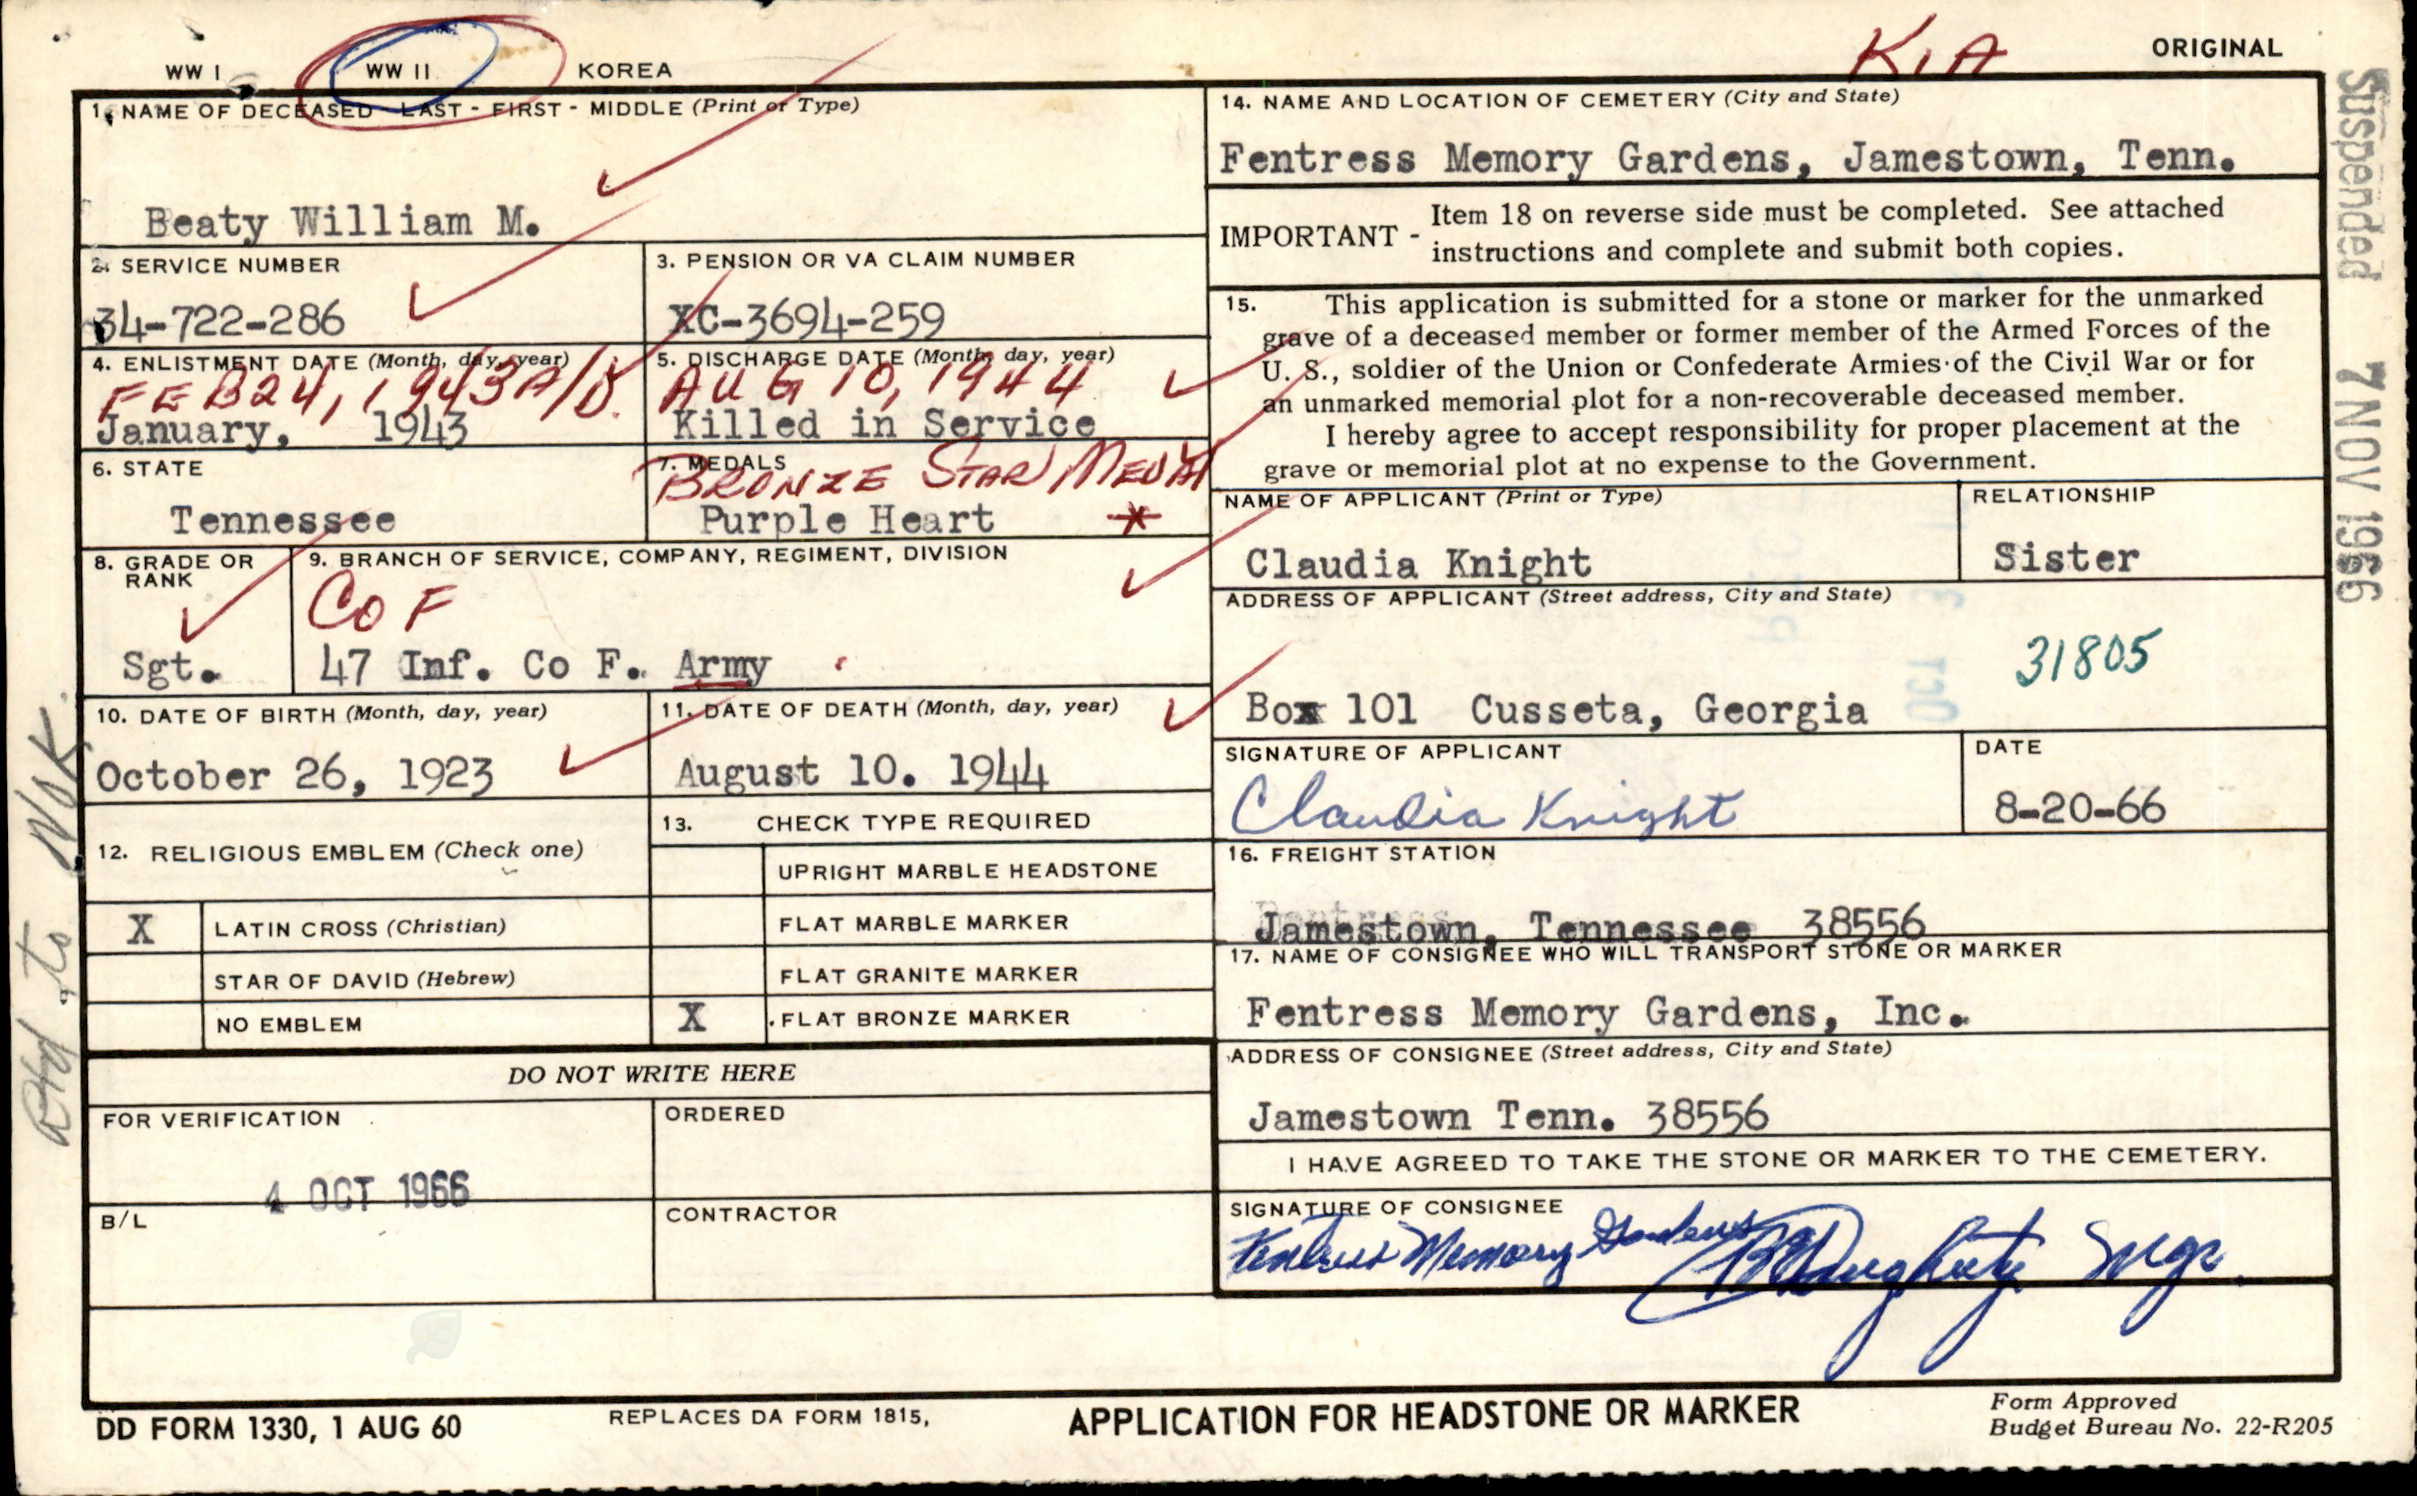 WW I WW II KOREA
KIA
ORIGINAL
1. NAME OF DECEASED LAST - FIRST - MIDDLE (Print or Type)
Beaty William M.
2. SERVICE NUMBER
34-722-286
3. PENSION OR VA CLAIM NUMBER
XC-3694-259
4. ENLISTMENT DATE (Month, day, year)
FEB 24, 1943 A/D
January, 1943
5. DISCHARGE DATE (Month, day, year)
AUG 10, 1944
Killed in Service
6. STATE
Tennessee
7. MEDALS
BRONZE STAR MEDAL
Purple Heart *
8. GRADE OR
RANK
Sgt.
9. BRANCH OF SERVICE, COMPANY, REGIMENT, DIVISION
Co F
47 Inf. Co F. Army
10. DATE OF BIRTH (Month, day, year)
October 26, 1923
11. DATE OF DEATH (Month, day, year)
August 10. 1944
12. RELIGIOUS EMBLEM (Check one)
X LATIN CROSS (Christian)
STAR OF DAVID (Hebrew)
NO EMBLEM
13. CHECK TYPE REQUIRED
UPRIGHT MARBLE HEADSTONE
FLAT MARBLE MARKER
FLAT GRANITE MARKER
X FLAT BRONZE MARKER
DO NOT WRITE HERE
FOR VERIFICATION
4 OCT 1966
ORDERED
B/L
CONTRACTOR
14. NAME AND LOCATION OF CEMETERY (City and State)
Fentress Memory Gardens, Jamestown, Tenn.
IMPORTANT - Item 18 on reverse side must be completed. See attached
instructions and complete and submit both copies.
15. This application is submitted for a stone or marker for the unmarked
grave of a deceased member or former member of the Armed Forces of the
U. S., soldier of the Union or Confederate Armies of the Civil War or for
an unmarked memorial plot for a non-recoverable deceased member.
I hereby agree to accept responsibility for proper placement at the
grave or memorial plot at no expense to the Government.
NAME OF APPLICANT (Print or Type)
Claudia Knight
RELATIONSHIP
Sister
ADDRESS OF APPLICANT (Street address, City and State)
31805
Box 101 Cusseta, Georgia
SIGNATURE OF APPLICANT
Claudia Knight
DATE
8-20-66
16. FREIGHT STATION
Jamestown, Tennessee 38556
17. NAME OF CONSIGNEE WHO WILL TRANSPORT STONE OR MARKER
Fentress Memory Gardens, Inc.
ADDRESS OF CONSIGNEE (Street address, City and State)
Jamestown Tenn. 38556
I HAVE AGREED TO TAKE THE STONE OR MARKER TO THE CEMETERY.
SIGNATURE OF CONSIGNEE
Fentress Memory Gardens Mgr.
Suspended 7 NOV 1966
to NOK
DD FORM 1330, 1 AUG 60
REPLACES DA FORM 1815,
APPLICATION FOR HEADSTONE OR MARKER
Form Approved
Budget Bureau No. 22-R205